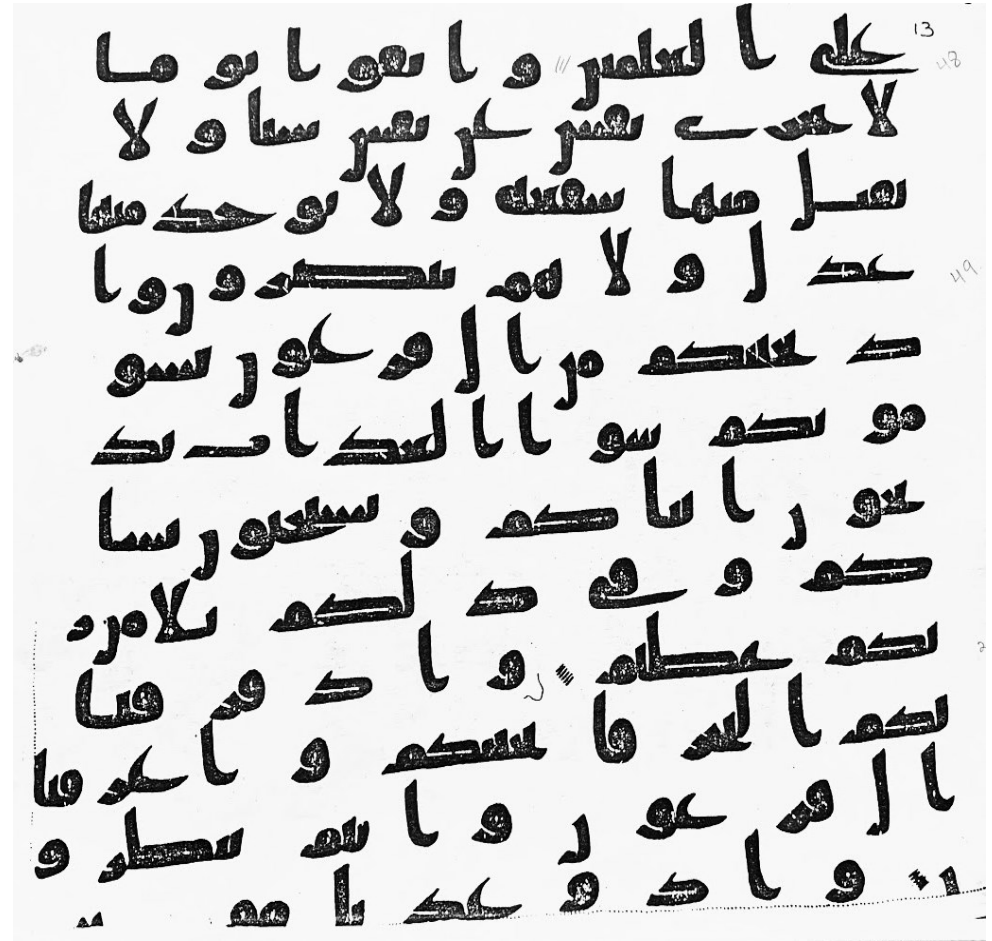 13
على العلمين واتقوا يوما
48
لا تجزى نفس عن نفس شيا ولا
يقبل منها شفعة ولا يوخذ منها
عدل ولا هم ينصرون وا
49
ذ نجينكم من ال فرعون يسو
مونكم سوا العذاب يذ
بحون ابناكم ويستحيون نسا
كم وفى ذلكم بلا من ر
بكم عظيم واذ فرقنا
بكم البحر فانجينكم واغرقنا
ال فرعون وانتم تنظرو
ن واذ وعدنا